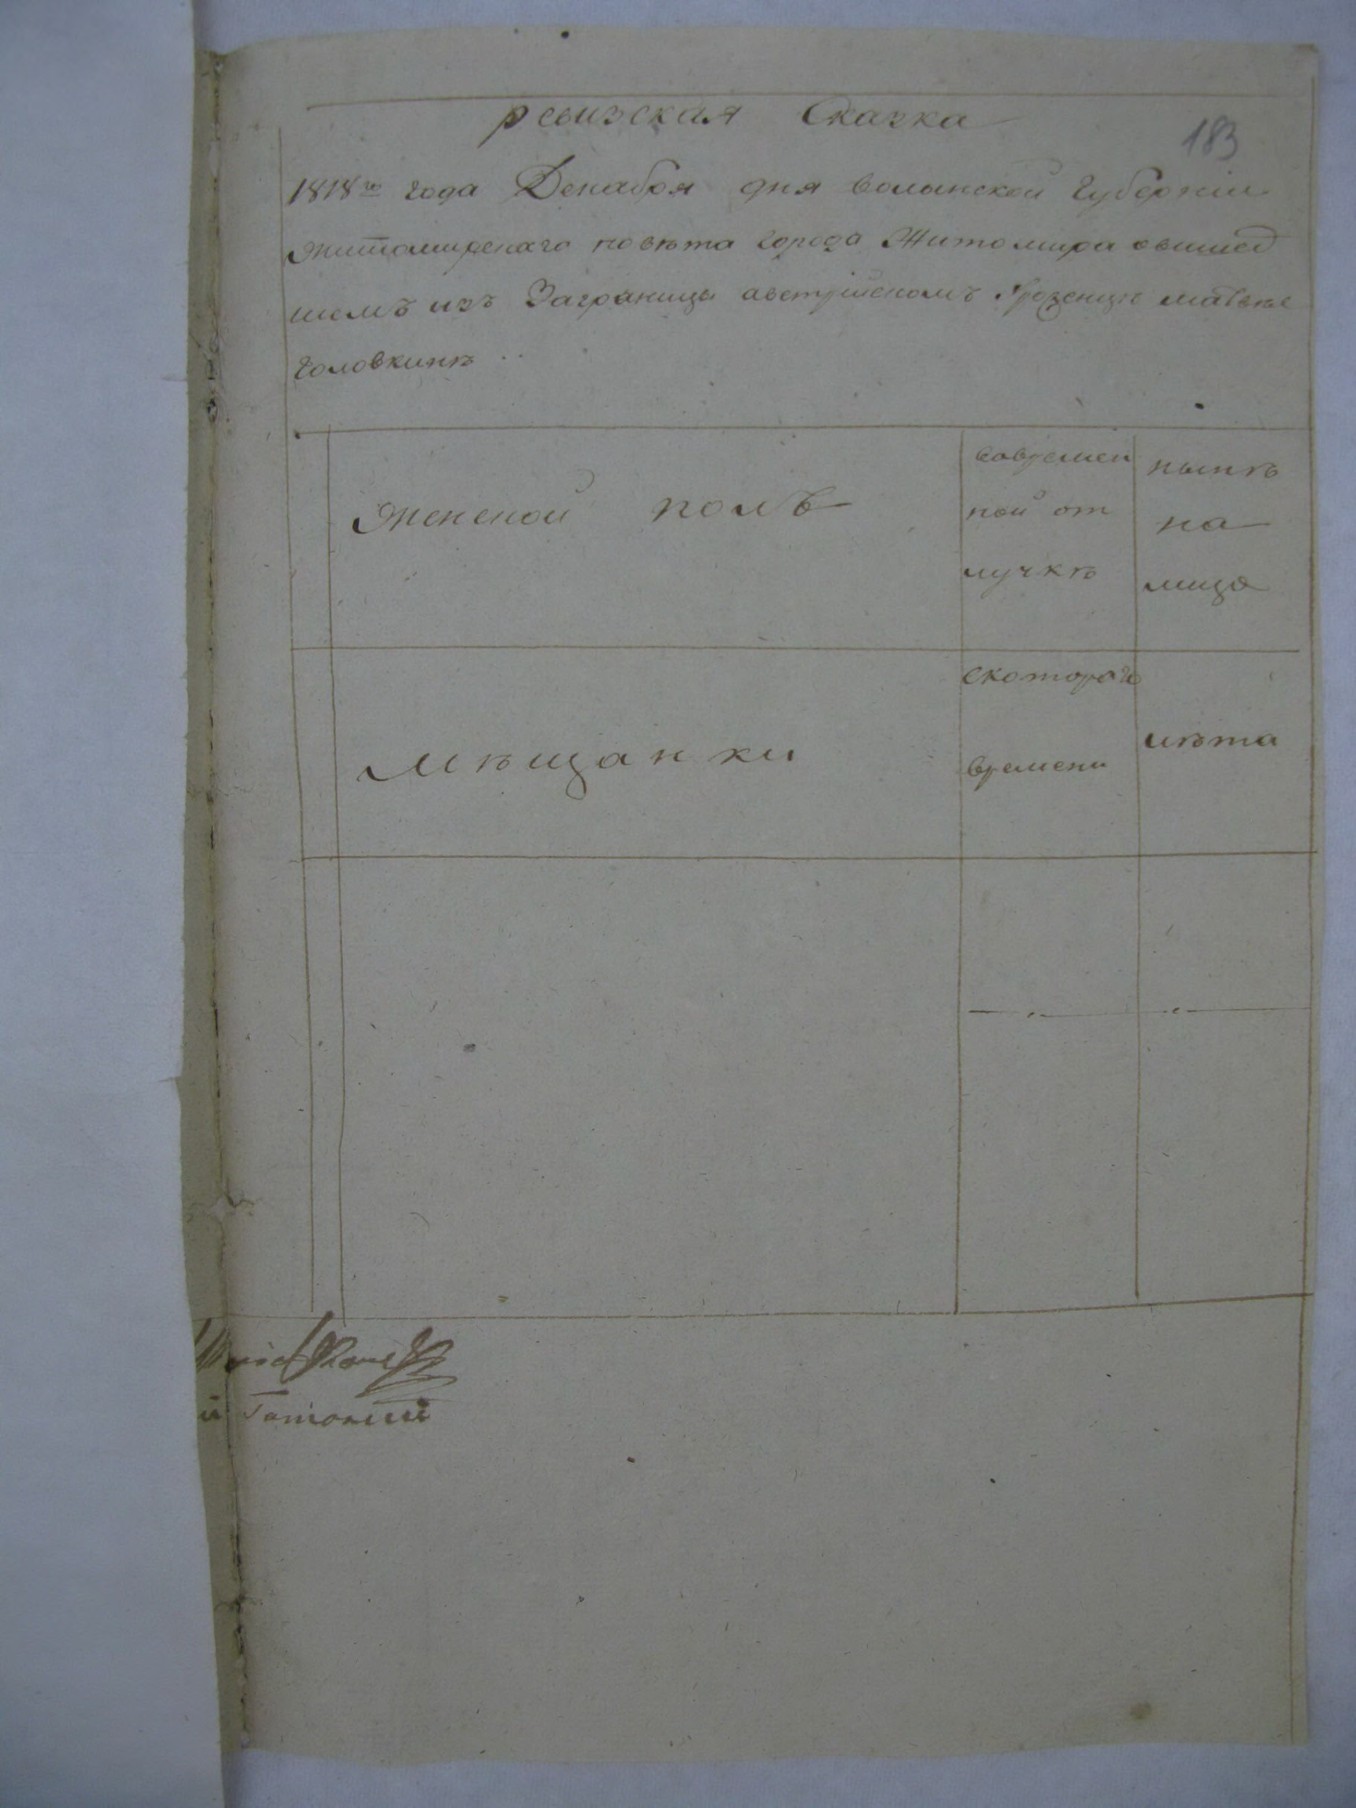 ревизская Сказка
183
1818го года Декабря дня волынской Губернiи
Житомирскаго повѣта города Житомира овышед
шемъ изъ Заграницы австрiйскомъ матвѣе
Головкинѣ
Женской полъ
вовремен
ной от
лучкѣ
нынѣ
на
лицо
Мѣщанки
скотораго
времени
лѣта